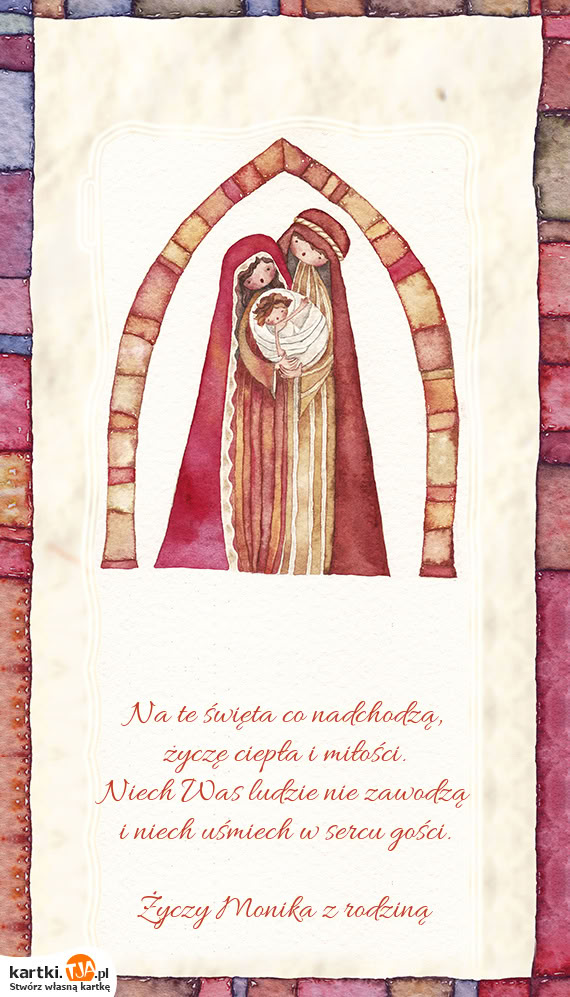 Na te święta co nadchodzą,
życzę ciepła i miłości.
Niech Was ludzie nie zawodzą
i niech uśmiech w sercu gości.
Życzy Monika z rodziną
kartki.TJA.pl
Stwórz własną kartkę